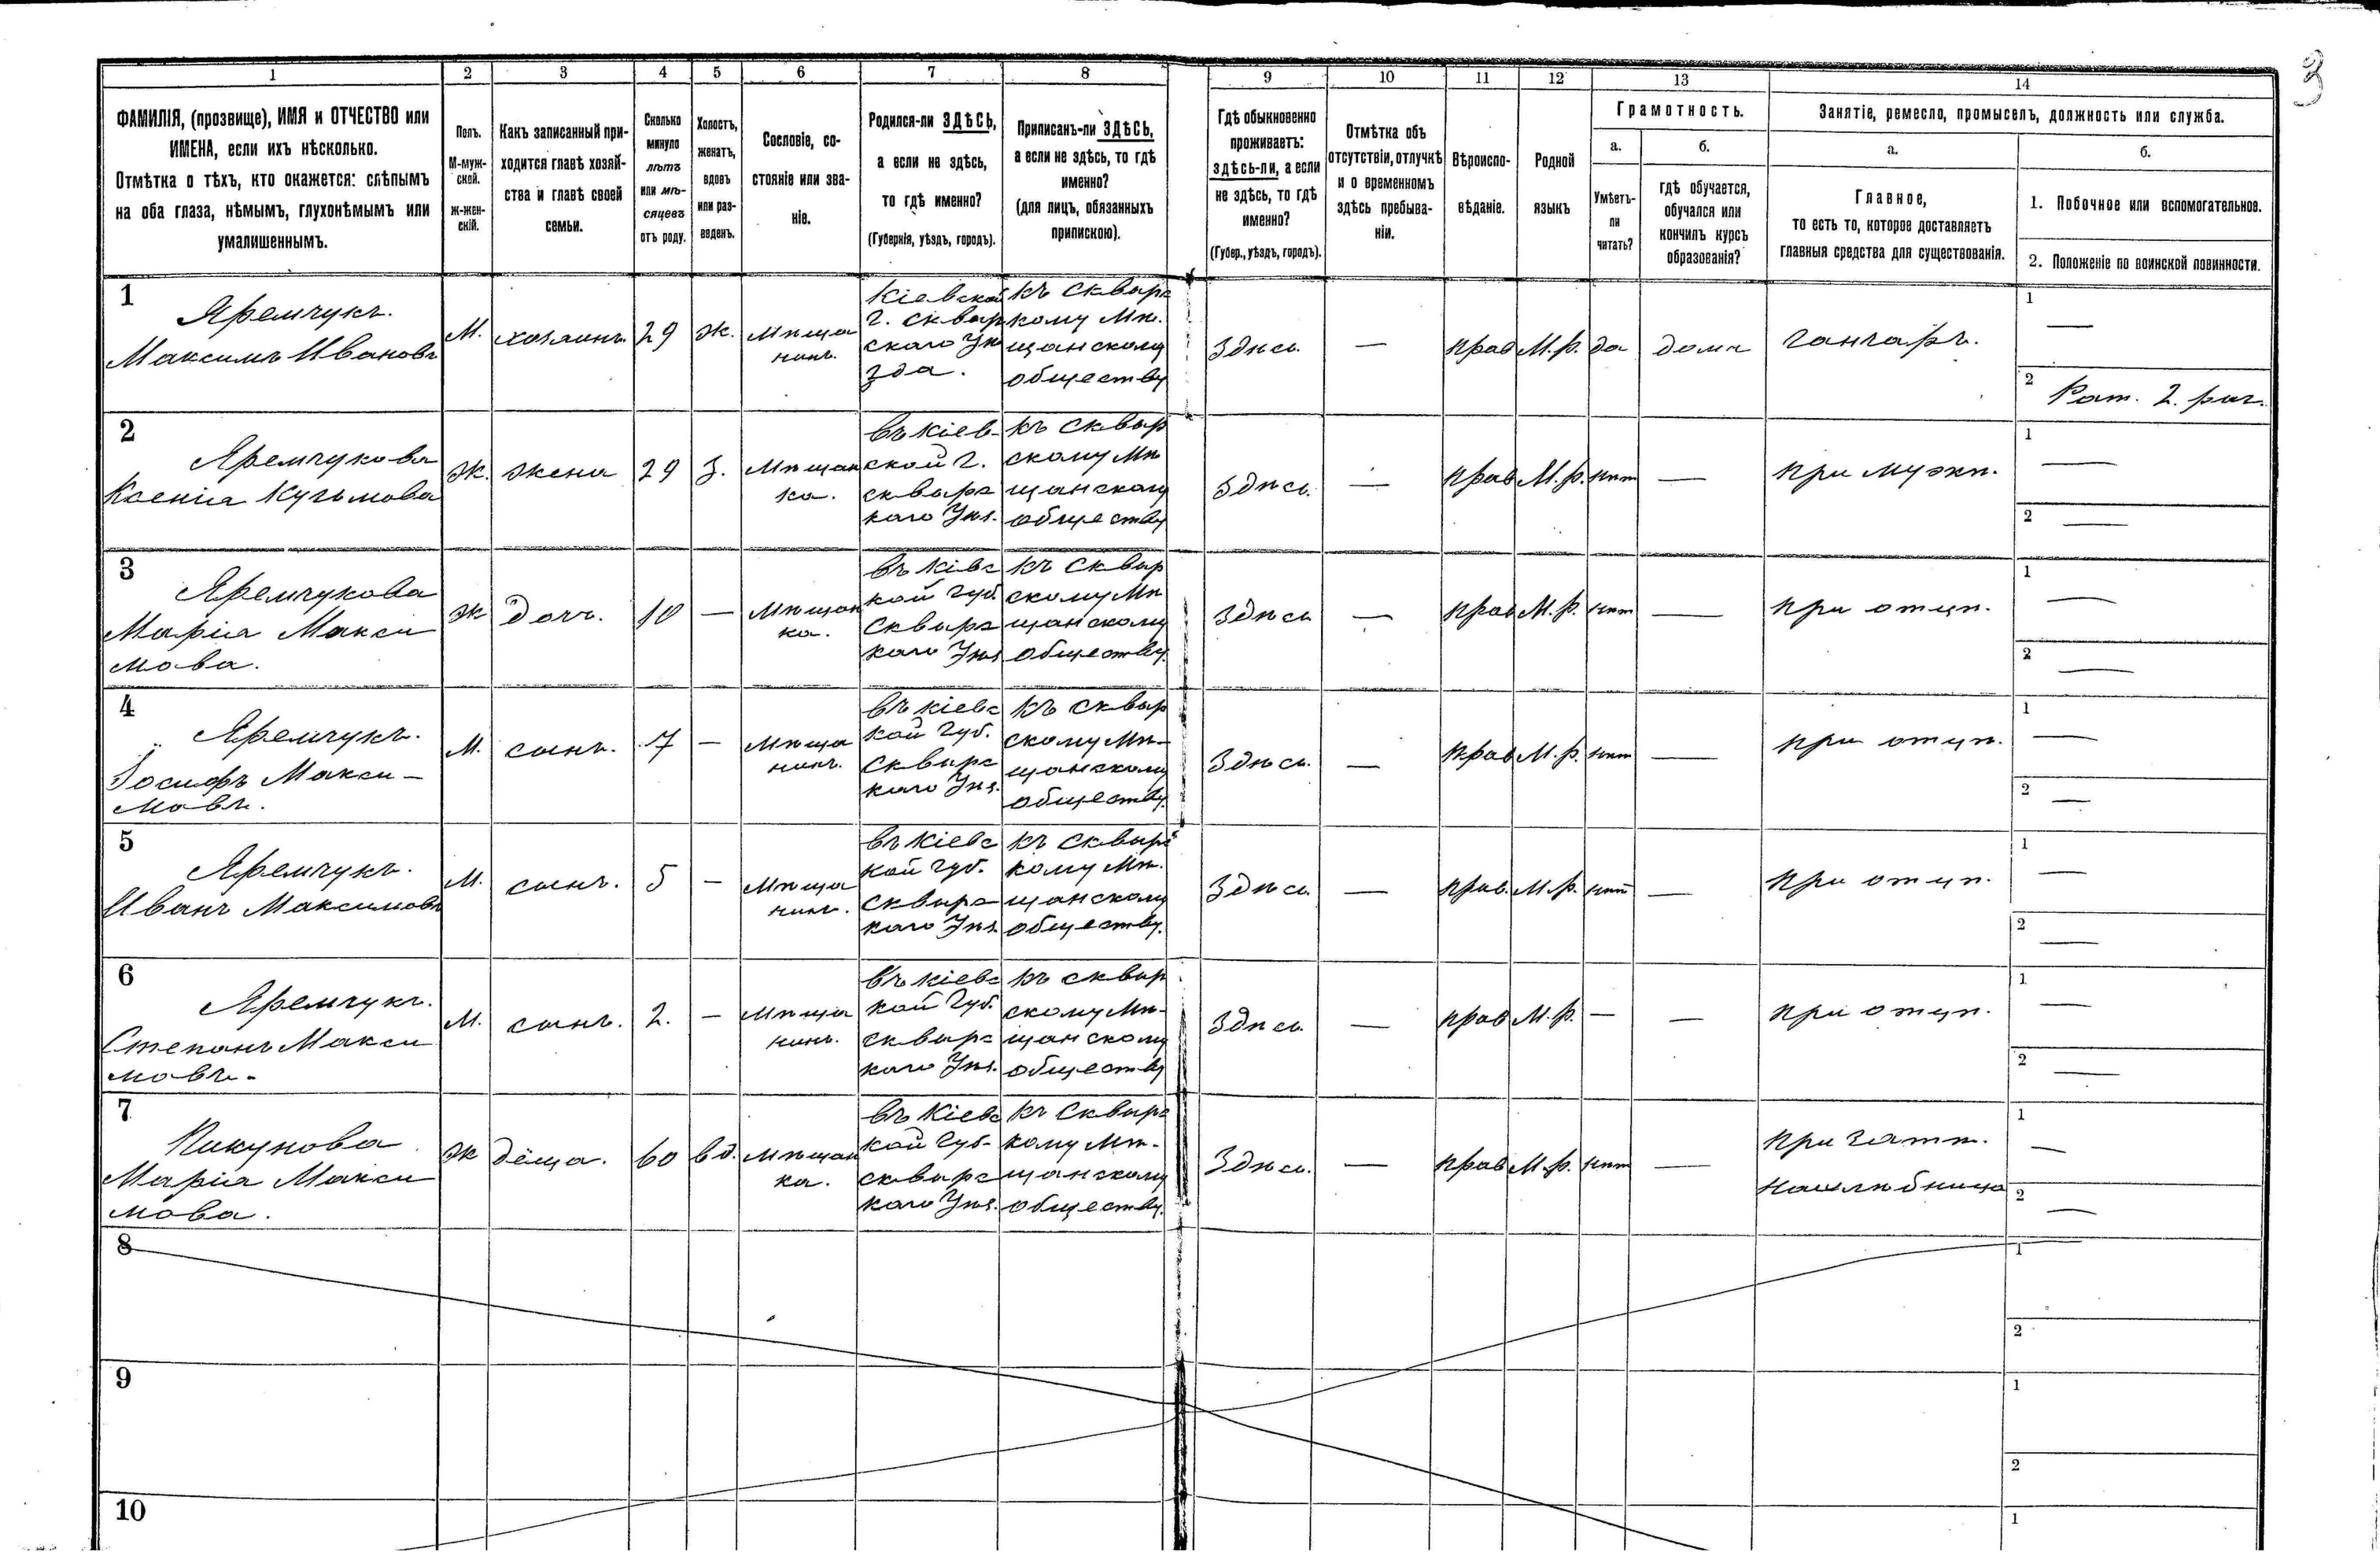 3
1 2 3 4 5 6 7 8 9 10 11 12 13 14
ФАМИЛІЯ, (прозвище), ИМЯ и ОТЧЕСТВО или
ИМЕНА, если ихъ нѣсколько.
Отмѣтка о тѣхъ, кто окажется: слѣпымъ
на оба глаза, нѣмымъ, глухонѣмымъ или
умалишеннымъ.
Полъ.
М-муж-
ской.
Ж-жен-
скій.
Какъ записанный при-
ходится главѣ хозяй-
ства и главѣ своей
семьи.
Сколько
минуло
лѣтъ
или мѣ-
сяцевъ
отъ роду.
Холостъ,
женатъ,
вдовъ
или раз-
веденъ.
Сословіе, со-
стояніе или зва-
ніе.
Родился-ли ЗДѢСЬ,
а если не здѣсь,
то гдѣ именно?
(Губернія, уѣздъ, городъ).
Приписанъ-ли ЗДѢСЬ,
а если не здѣсь, то гдѣ
именно?
(для лицъ, обязанныхъ
припискою).
Гдѣ обыкновенно
проживаетъ:
здѣсь-ли, а если
не здѣсь, то гдѣ
именно?
(Губер., уѣздъ, городъ).
Отмѣтка объ
отсутствіи, отлучкѣ
и о временномъ
здѣсь пребыва-
ніи.
Вѣроиспо-
вѣданіе.
Родной
языкъ
Грамотность.
а.
Умѣетъ-
ли
читать?
б.
гдѣ обучается,
обучался или
кончилъ курсъ
образованія?
Занятіе, ремесло, промыселъ, должность или служба.
а.
Главное,
то есть то, которое доставляетъ
главныя средства для существованія.
б.
1. Побочное или вспомогательное.
2. Положеніе по воинской повинности.
1
Яремчукъ.
Максимъ Ивановъ
М.
хозяинъ.
29
Ж.
Мѣща
нинъ.
Кіевской
г. сквир
скаго Уѣ
зда.
къ Сквирс
кому Мѣ.
щанскому
обществу
Здѣсь.
—
прав
М.р.
да
дома
ганчаръ.
1 —
2 Рат. 2. раз.
2
Яремчукова
Ксенія Кузьмова
Ж.
жена
29
З.
Мѣщан
ка.
въ кіев-
ской г.
сквирс
каго Уѣз.
къ Сквир
скому Мѣ
щанскому
обществу
Здѣсь.
—
прав
М.р.
нѣт
—
при мужѣ.
1 —
2 —
3
Яремчукова
Марія Макси
мова.
Ж
дочъ.
10
—
Мѣщан
ка.
въ Кіевс
кой губ.
Сквирс
каго Уѣз
къ Сквир
скому Мѣ
щанскому
обществу.
Здѣсь
—
прав
М.р.
нѣт
—
при отцѣ.
1 —
2 —
4
Яремчукъ.
Іосифъ Макси-
мовъ.
М.
сынъ.
7
—
Мѣща
нинъ.
въ кіевс
кой Губ.
Сквирс
каго Уѣз.
къ Сквир
скому Мѣ-
щанскому
обществу.
Здѣсь.
—
прав
М.р.
нѣт
—
при отцѣ.
1 —
2 —
5
Яремчукъ.
Иванъ Максимовъ
М.
сынъ.
5
—
Мѣща
нинъ.
въ Кіевс
кой губ.
Сквирс
каго Уѣз.
къ Сквирс
кому Мѣ.
щанскому
обществу.
Здѣсь
—
прав.
М.р.
нѣт
—
при отцѣ.
1 —
2 —
6
Яремчукъ.
Степанъ Макси
мовъ-
М.
сынъ.
2.
—
Мѣща
нинъ.
въ кіевс
кой Губ.
сквирс
каго Уѣз.
къ сквир
скому Мѣ-
щанскому
обществу
Здѣсь.
—
прав
М.р.
—
—
при отцѣ.
1 —
2 —
7
Пикунова
Марія Макси
мова.
Ж
дёща.
60
вд.
мѣщан
ка.
въ Кіевс
кой губ-
сквирс
каго Уѣз.
къ Сквирс
кому Мѣ-
щанскому
обществу.
Здѣсь.
—
прав
М.р.
нѣт
—
при зятѣ.
нахлѣбница
1 —
2 —
8
1
2
9
1
2
10
1